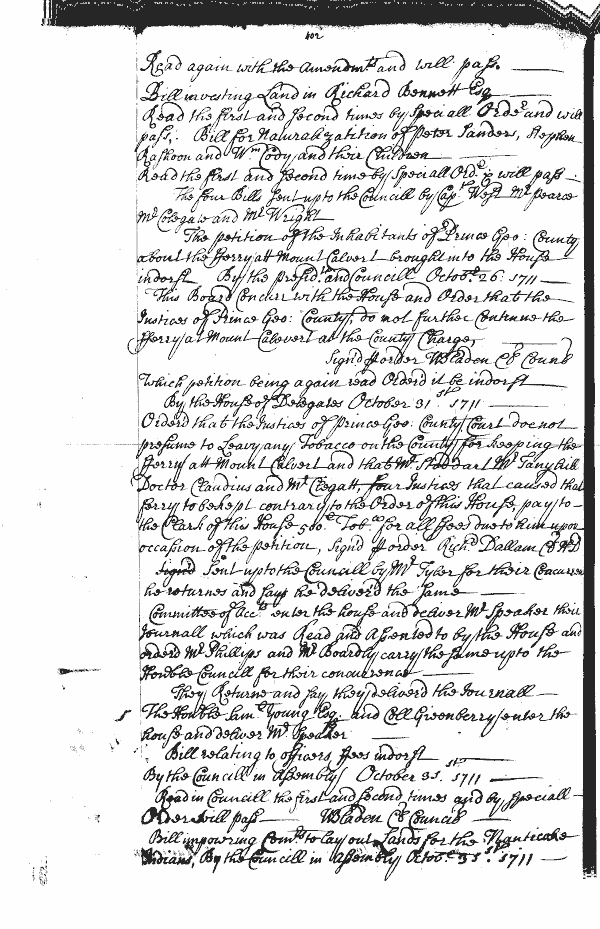 402
Read again with the Amendmts and will pass.
Bill investing Land in Richard Bennett Esq
Read the first and second times by speciall Order and will
pass,. Bill for Naturalizatition of Peter Sanders, Stephen
and Wm Cody, and their Children
Read the first and second time by Speciall Ordr & will pass
The four Bills sent up to the Councill by Capt West Mr Pearce
Mr Colegate and Mr Wright
The petition of the Inhabitants of Prince Geo: County
about the fferry att Mount Calvert brought into the House
indorst By the presidt and Councill Octobr 26: 1711
This Board Concurr with the House and Order that the
Justices of Prince Geo: County, do not further Continue the
fferry at Mount Calevert at the County Charge,
Signd p order WBladen Cl Counl
Which petition being again read Orderd it be indorst
By the House of Delegates October 31st. 1711
Orderd that the Justices of Prince Geo: County Court doe not
presume to Leavy any Tobacco on the County for keeping the
fferry att Mount Calvert and that Mr Stoddart Mr Tanyhill
Doctor Claudius and Mr Clegatt, four Justices that caused that
ferry to be kept contrary to the Order of this House, pay to
the Clark of this House 500l Tobco for all ffees due to him upon
occasion of the petition, Signd p order Richd Dallam Cl HD
Signd Sent up to the Councill by Mr Tyler for their Concurren
he returnes and says he deliverd the same
Committee of Acctts enter the house and deliver Mr Speaker their
Journall which was Read and Assented to by the House and
orderd Mr Phillips and Mr Boardly carry the same up to the
Honble Councill for their concurrence
They Returne and say they deliverd the Journall
The Honble Saml Young Esq. and Coll Greenberry enter the
house and deliver Mr Speaker
Bill relating to officers ffees indorst
By the Councill in Assembly October 31st. 1711
Read in Councill the first and second times and by speciall
Order will pass WBladen Cl Council
Bill impowring Comrs to lay out Lands for the Nanticoke
Indians, By the Councill in Assembly Octobr 31st. 1711